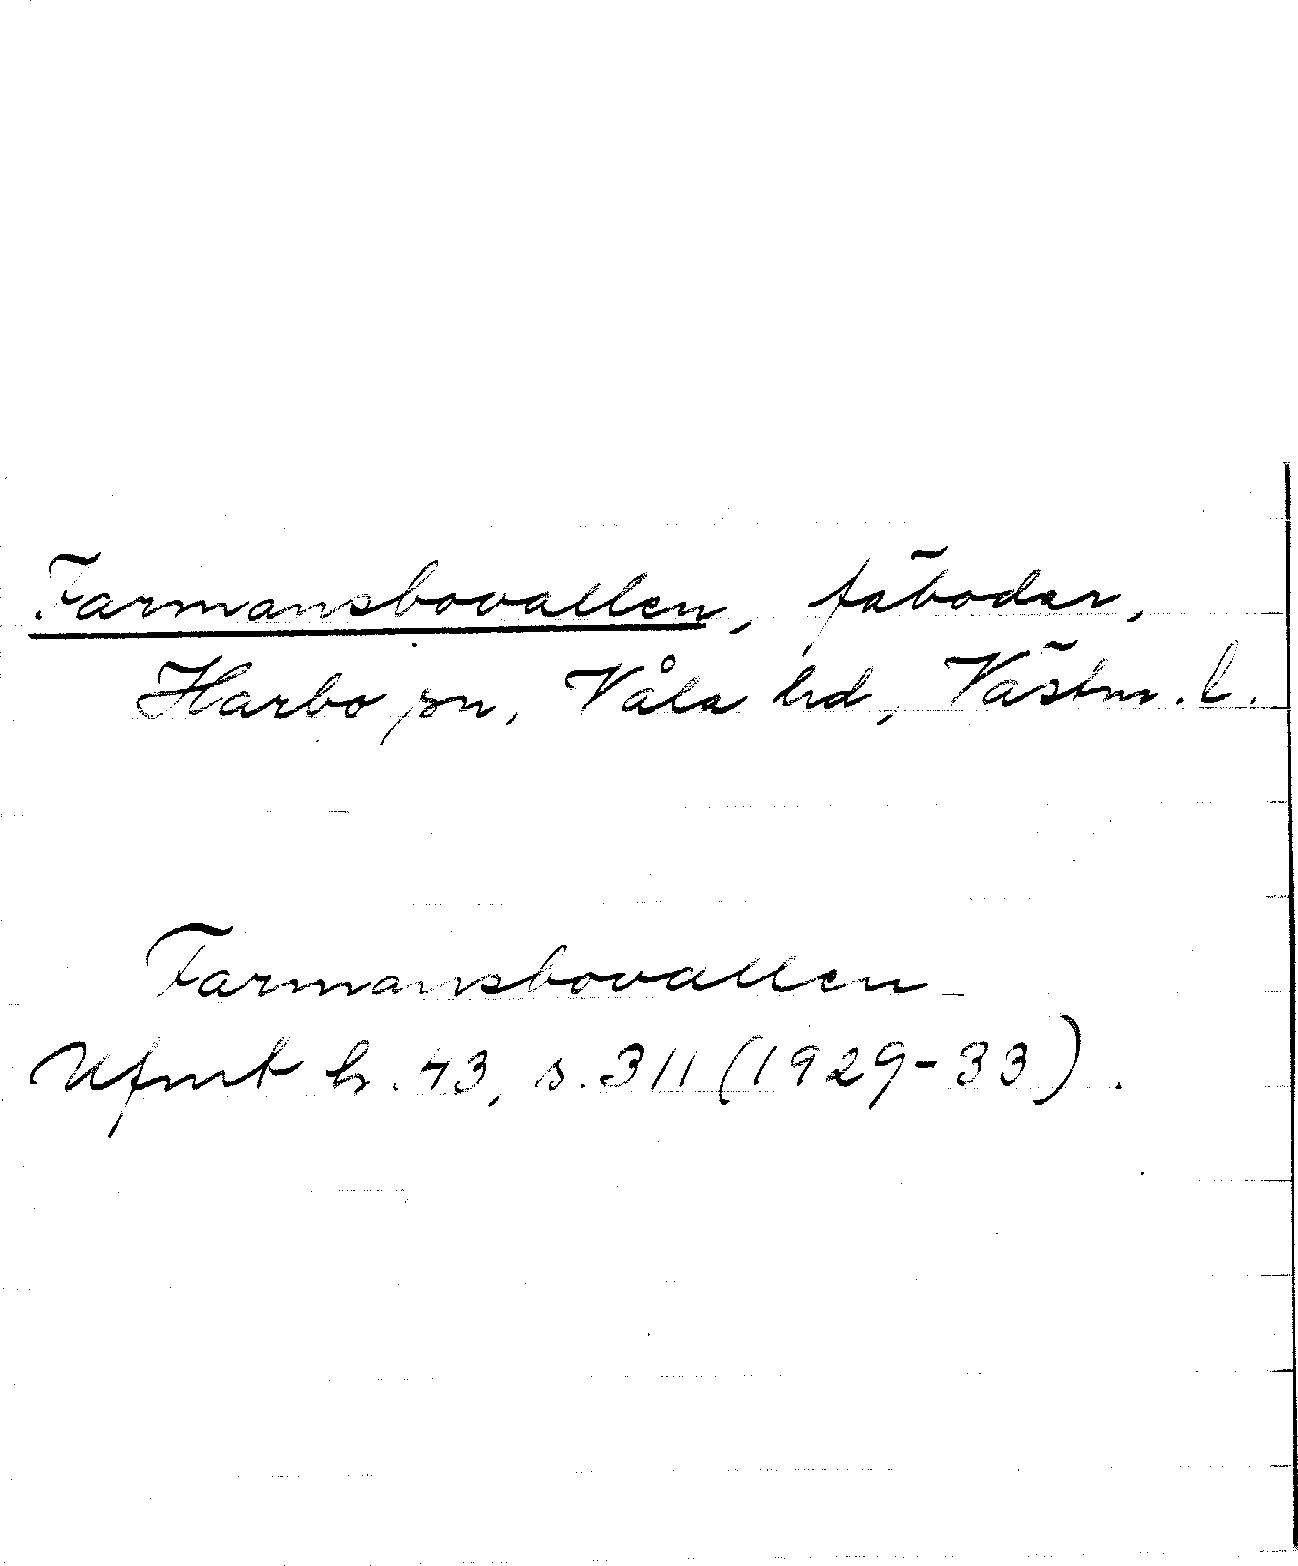 Farmansbovallen, fäboder,
Harbo sn, Våla hd, Västm. l.
Farmansbovallen
Ufmt h. 43, s. 311 (1929-33).